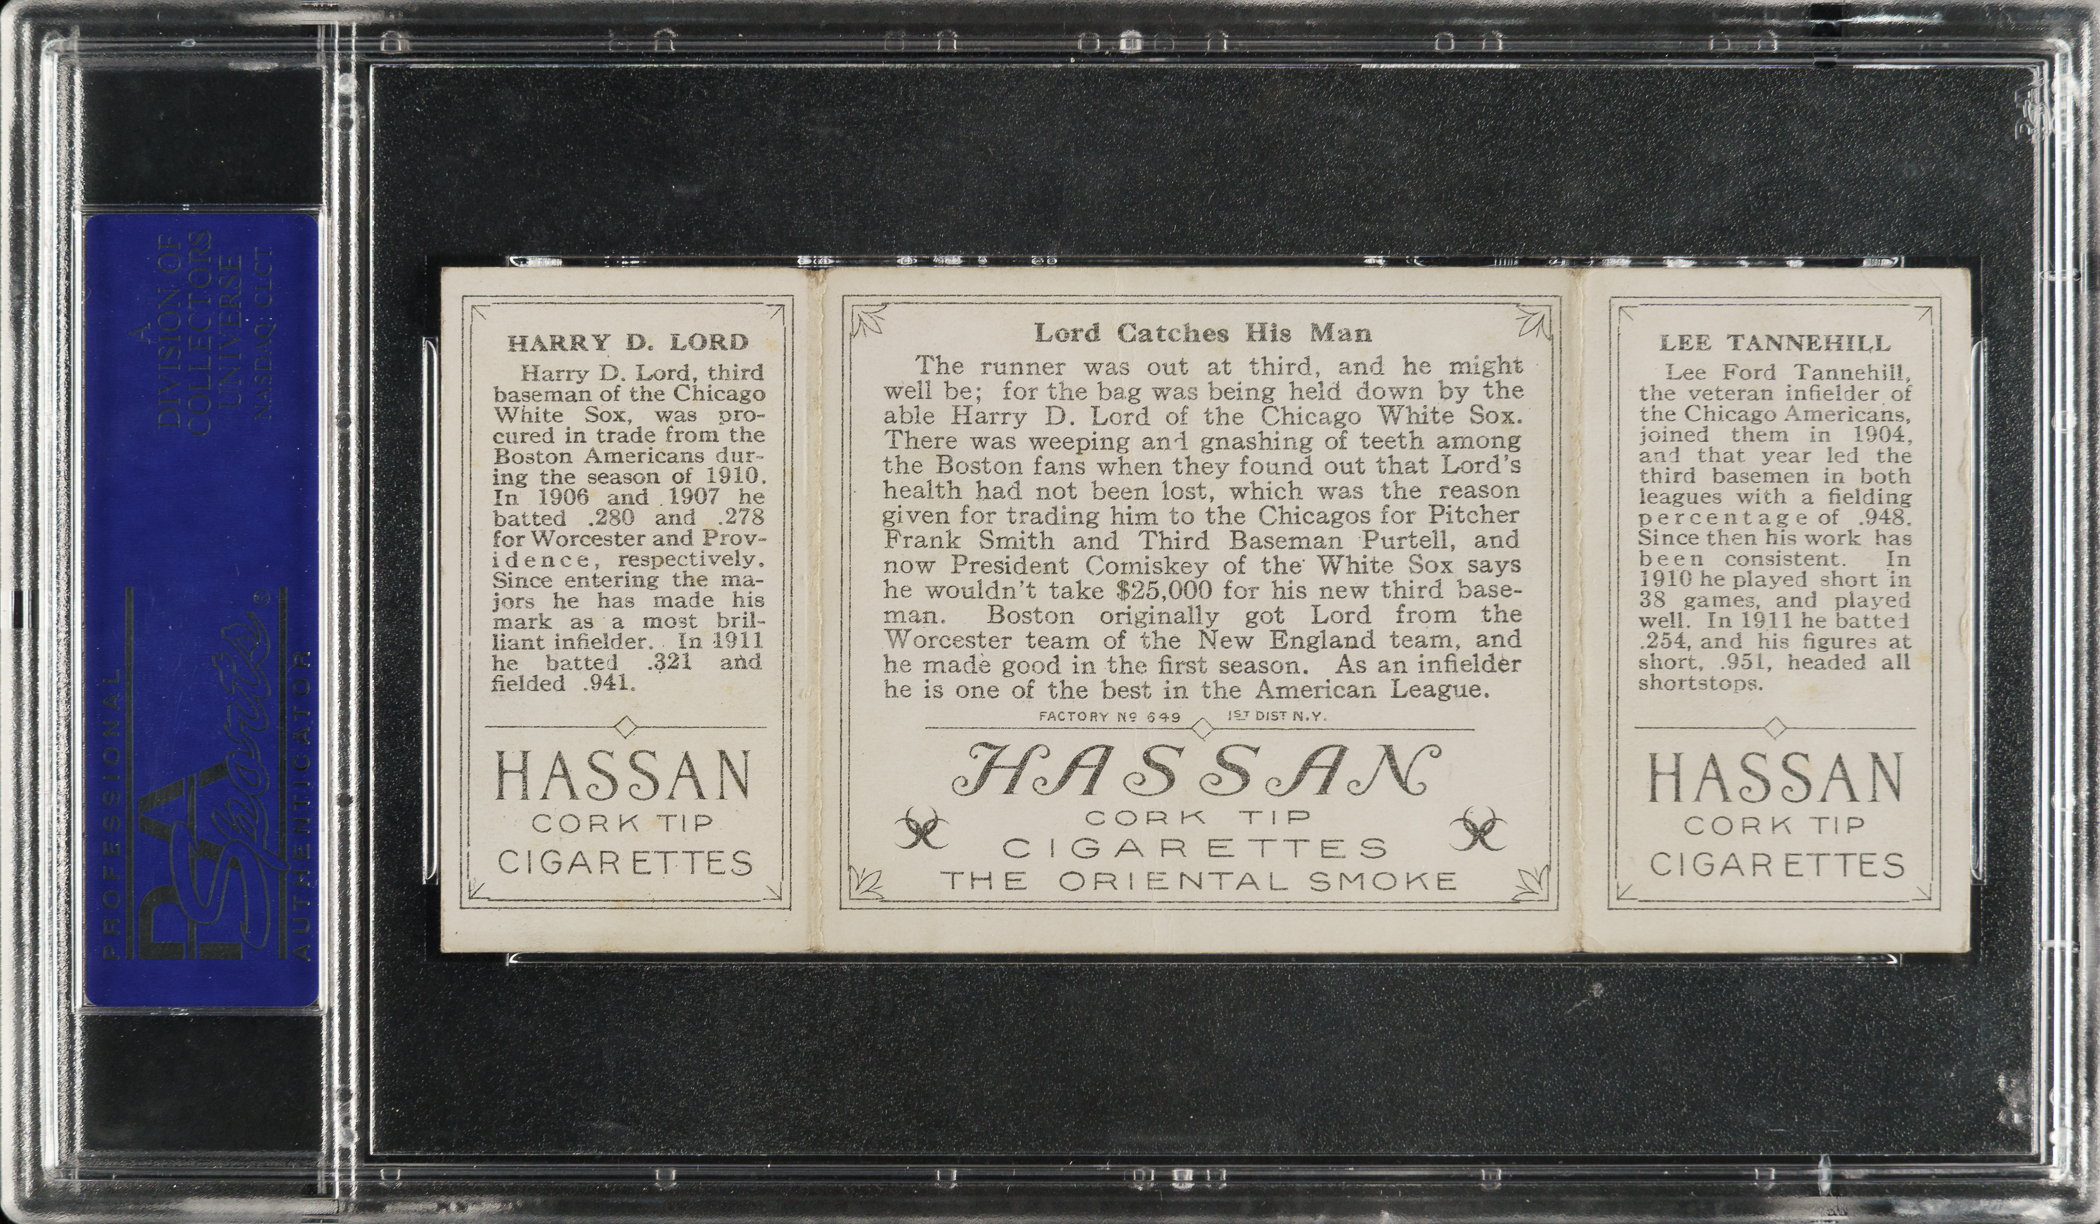 A
DIVISION OF
COLLECTORS
UNIVERSE
NASDAQ: CLCT
PROFESSIONAL
PSA
Sports
AUTHENTICATOR
HARRY D. LORD
Harry D. Lord, third
baseman of the Chicago
White Sox, was pro-
cured in trade from the
Boston Americans dur-
ing the season of 1910.
In 1906 and 1907 he
batted .280 and .278
for Worcester and Prov-
idence, respectively.
Since entering the ma-
jors he has made his
mark as a most bril-
liant infielder. In 1911
he batted .321 and
fielded .941.
HASSAN
CORK TIP
CIGARETTES
Lord Catches His Man
The runner was out at third, and he might
well be; for the bag was being held down by the
able Harry D. Lord of the Chicago White Sox.
There was weeping and gnashing of teeth among
the Boston fans when they found out that Lord's
health had not been lost, which was the reason
given for trading him to the Chicagos for Pitcher
Frank Smith and Third Baseman Purtell, and
now President Comiskey of the White Sox says
he wouldn't take $25,000 for his new third base-
man. Boston originally got Lord from the
Worcester team of the New England team, and
he made good in the first season. As an infielder
he is one of the best in the American League.
FACTORY Nº 649 1ST DIST N.Y.
HASSAN
CORK TIP
CIGARETTES
THE ORIENTAL SMOKE
LEE TANNEHILL
Lee Ford Tannehill,
the veteran infielder of
the Chicago Americans,
joined them in 1904,
and that year led the
third basemen in both
leagues with a fielding
percentage of .948.
Since then his work has
been consistent. In
1910 he played short in
38 games, and played
well. In 1911 he batted
.254, and his figures at
short, .951, headed all
shortstops.
HASSAN
CORK TIP
CIGARETTES